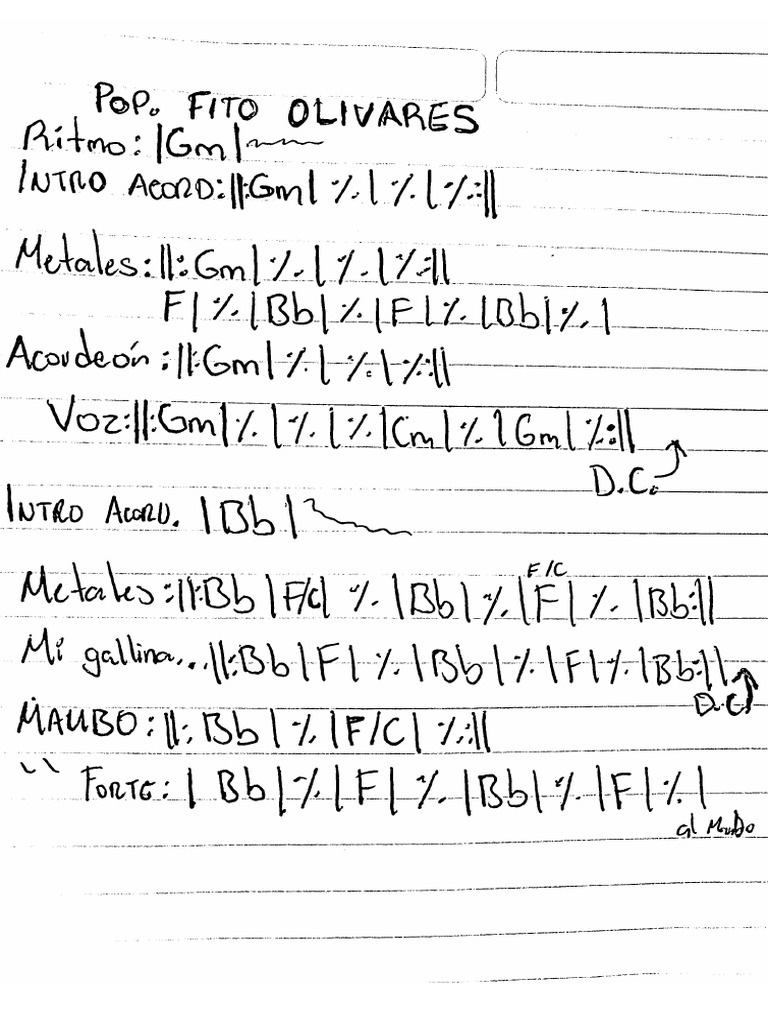 POP. FITO OLIVARES
Ritmo: |Gm|
INTRO ACORD:||:Gm| ٪ | ٪ | ٪ :||
Metales:||:Gm| ٪ | ٪ | ٪ :||
F| ٪ |Bb| ٪ |F| ٪ |Bb| ٪ |
Acordeón:||:Gm| ٪ | ٪ | ٪ :||
Voz:||:Gm| ٪ | ٪ | ٪ |Cm| ٪ |Gm| ٪ :||
D.C.
INTRO ACORD. |Bb|
F/C
Metales:||:Bb|F/C| ٪ |Bb| ٪ |F| ٪ |Bb:||
Mi gallina...||:Bb|F| ٪ |Bb| ٪ |F| ٪ |Bb:||
D.C.
MAMBO:||:Bb| ٪ |F/C| ٪ :||
" FORTE: |Bb| ٪ |F| ٪ |Bb| ٪ |F| ٪ |
al Mambo